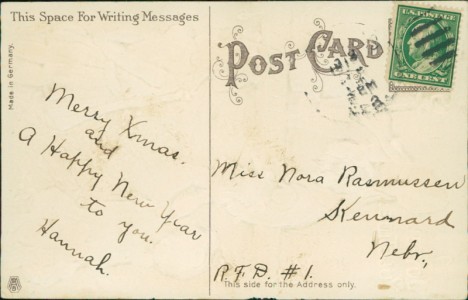 This Space For Writing Messages
Made in Germany.
Merry Xmas.
and
A Happy New Year
to you.
Hannah.
POST CARD
U.S. POSTAGE
ONE CENT
Miss Nora Rasmussen
Kennard
Nebr.,
R.F.D. #1.
This side for the Address only.